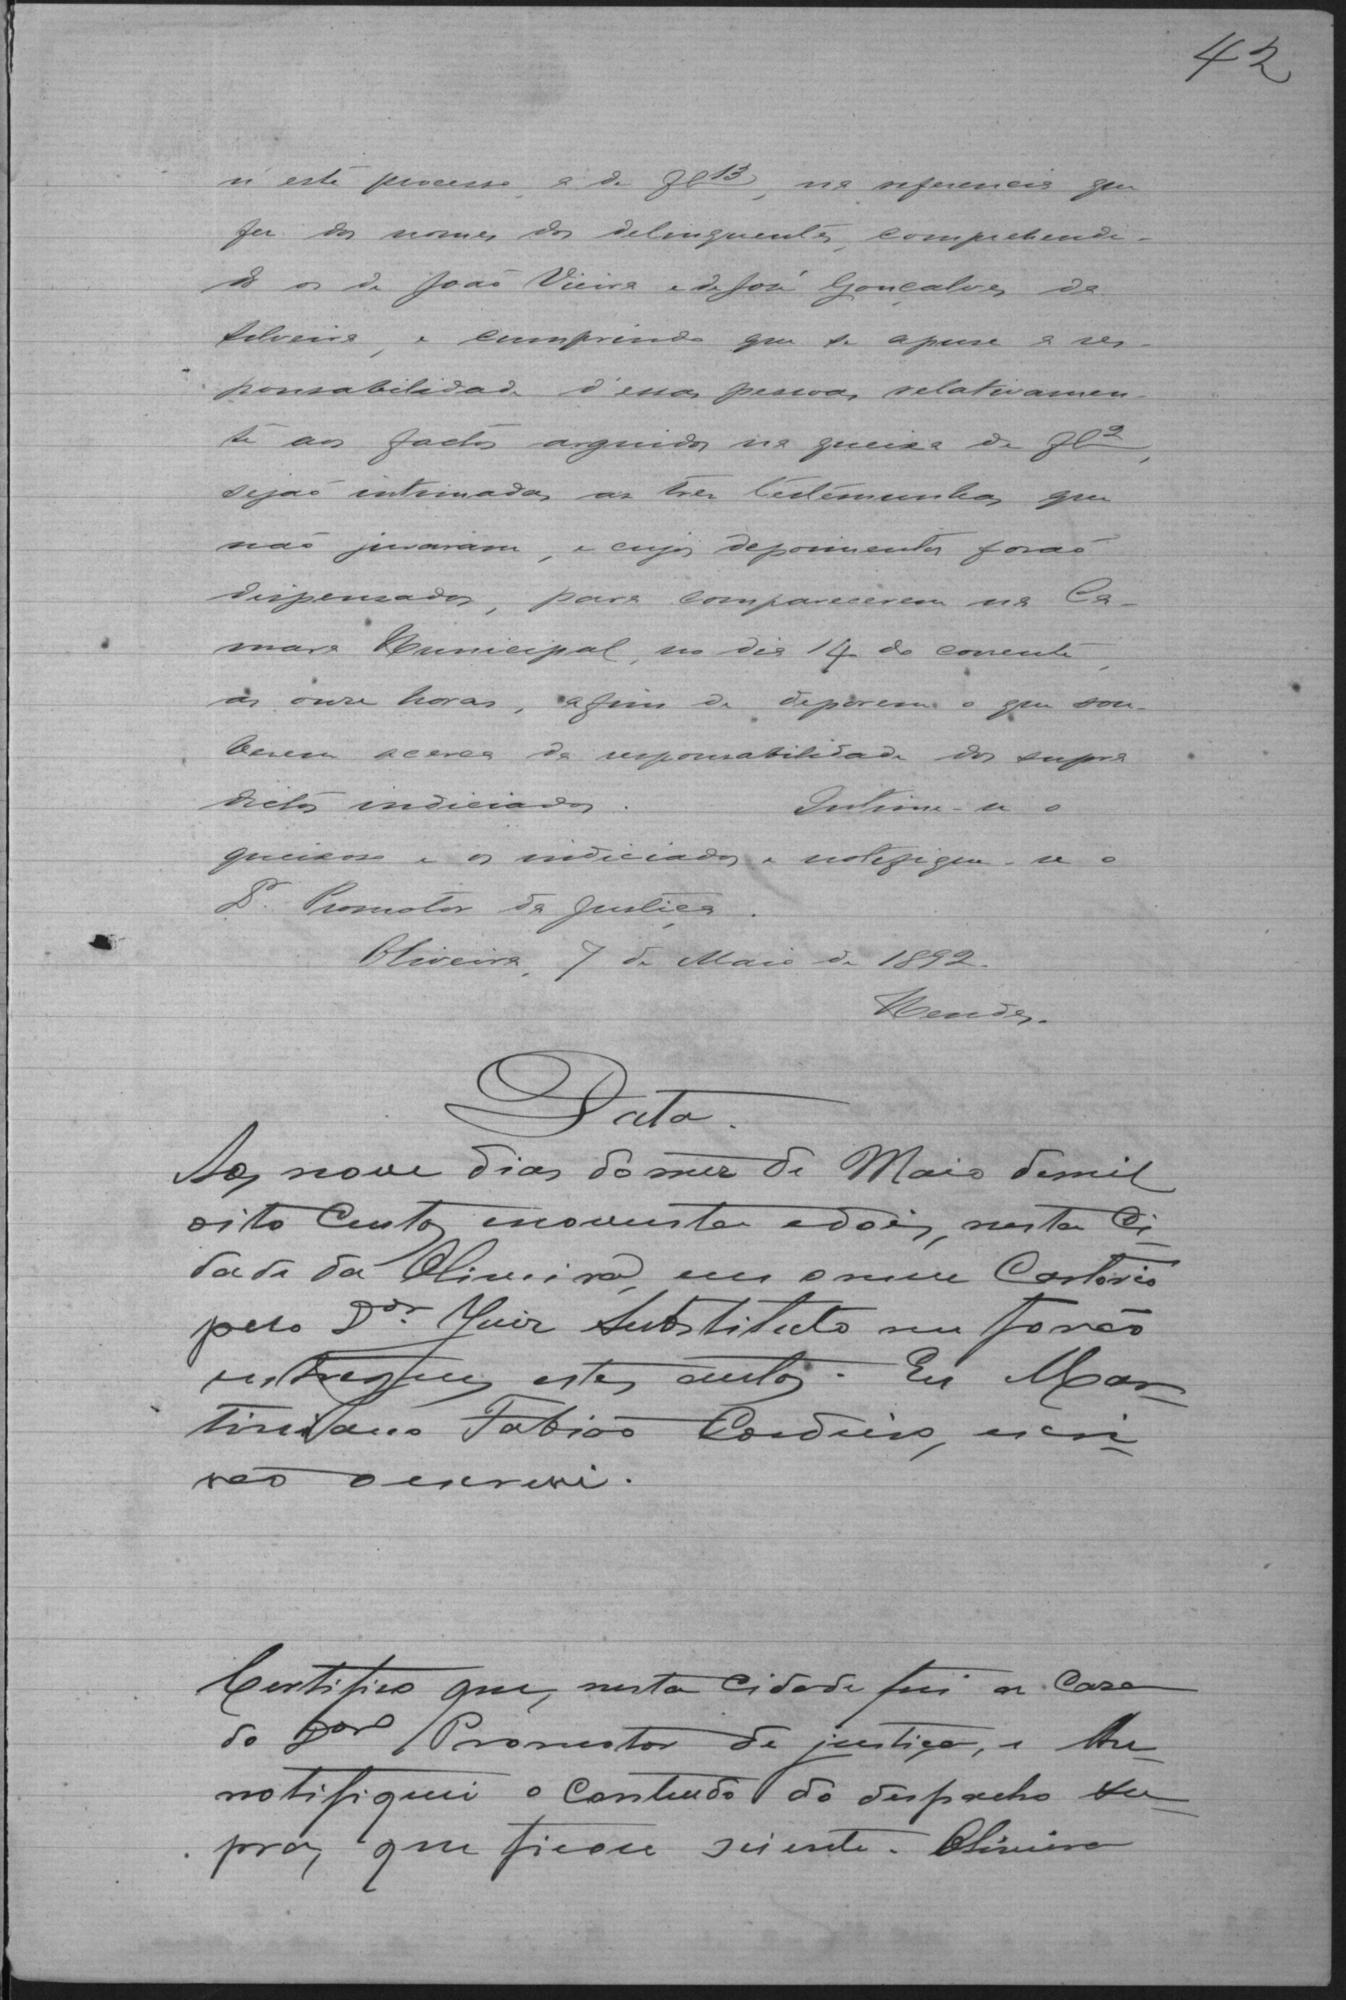 42
n'este processo, a de fl 13, na referencia que
fez dos nomes dos delinquentes, comprehendi-
do os de João Vieira e de José Gonçalves da
Silveira, e cumprindo que se apure a res-
ponsabilidade d'essas pessoas, relativamen-
te aos factos arguidos na queixa de fl 2,
sejaõ intimadas as tres testemunhas que
naõ juraram, e cujos depoimentos foraõ
dispensados, para comparecerem na Ca-
mara Municipal, no dia 14 do corrente,
as onze horas, afim de deporem o que sou-
berem acerca da responsabilidade dos supra
dictos indiciados. Intime-se o
queixoso e os indiciados e notifique-se o
Dr. Promotor da Justiça.
Oliveira, 7 de Maio de 1892.
Mendes.
Data.
Aos nove dias do mez de Maio de mil
oito centos e noventa e dois, nesta Ci-
dade da Oliveira, em o meu Cartorio
pelo Dor. Juiz Substituto me foraõ
entregues estes autos. Eu Mar-
tiniano Fabiaõ Cordeiro, escri-
vaõ o escrevi.
Certifico que, nesta Cidade fui a casa
do Dor Promotor de justiça, e lhe
notifiquei o contheudo do despacho su-
pra, que ficou sciente. Oliveira